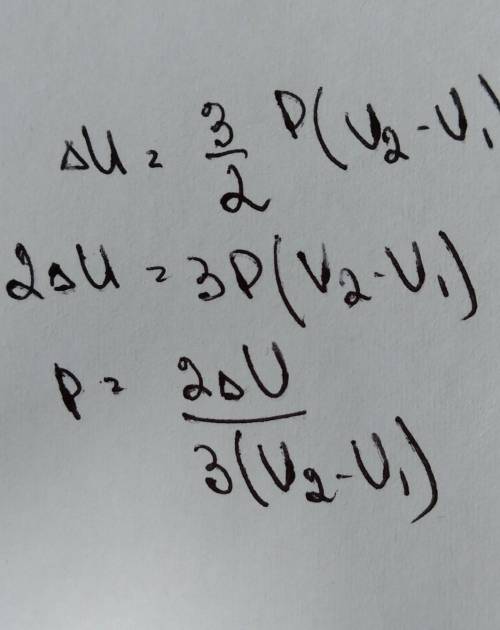 ΔU = 3/2 P(V₂ - V₁)
2ΔU = 3P(V₂ - V₁)
P = 2ΔU / 3(V₂ - V₁)